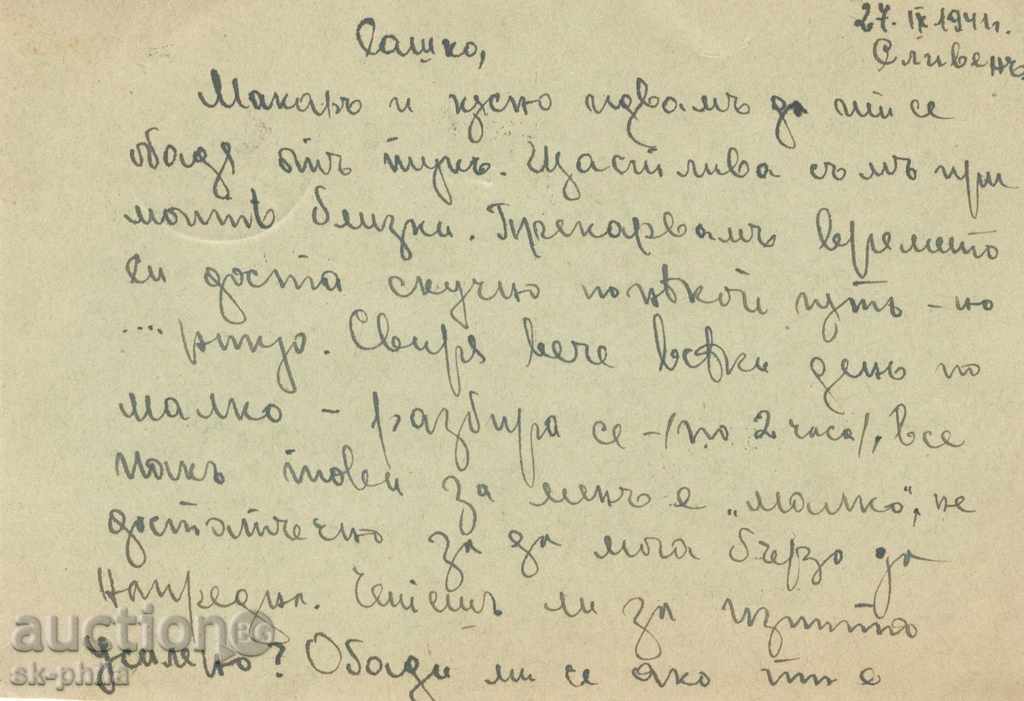 27. IX 1941 г.
Сливенъ
Сашко,
Макаръ и късно идвамъ да ти се
обадя отъ тукъ. Щастлива съмъ при
моитѣ близки. Прекарвамъ времето
си доста скучно понѣкой пѫть - но
.... Свиря вече всѣки день по
малко - разбира се - /по 2 часа/, все
пакъ това за менъ е „малко", не
достатъчно за да мога бързо да
напредна. Четешъ ли за изпита
усилено? Обади ми се ако ти е
auction BG
sk-phila